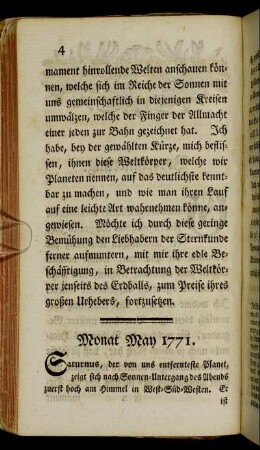 4
mament hinrollende Welten anschauen kön-
nen, welche sich im Reiche der Sonnen mit
uns gemeinschaftlich in diejenigen Kreisen
umwälzen, welche der Finger der Allmacht
einer jeden zur Bahn gezeichnet hat. Ich
habe, bey der gewählten Kürze, mich beflis-
sen, ihnen diese Weltkörper, welche wir
Planeten nennen, auf das deutlichste kennt-
bar zu machen, und wie man ihren Lauf
auf eine leichte Art wahrnehmen könne, an-
gewiesen. Möchte ich durch diese geringe
Bemühung den Liebhabern der Sternkunde
ferner aufmuntern, mit mir ihre edle Be-
schäfftigung, in Betrachtung der Weltkör-
per jenseits des Erdballs, zum Preise ihres
großen Urhebers, fortzusetzen.
Monat May 1771.
Saturnus, der von uns entfernteste Planet,
zeigt sich nach Sonnen-Untergang des Abends
zuerst hoch am Himmel in West-Süd-Westen. Er
ist